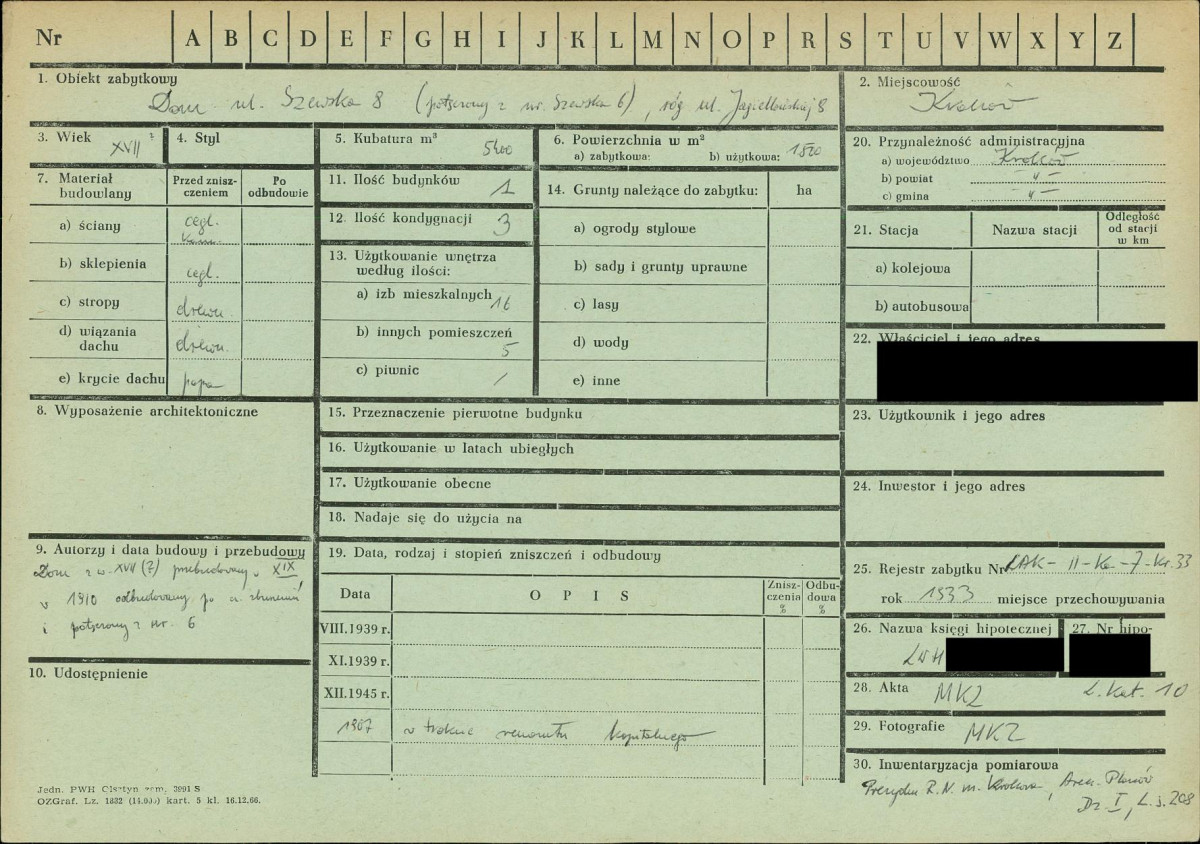 Nr A B C D E F G H I J K L M N O P R S T U V W X Y Z
1. Obiekt zabytkowy
Dom ul. Szewska 8 (połączony z nr. Szewska 6), róg ul. Jagiellońskiej 8
2. Miejscowość
Kraków
3. Wiek XVII ?
4. Styl
5. Kubatura m³ 5400
6. Powierzchnia w m²
a) zabytkowa: b) użytkowa: 1520
20. Przynależność administracyjna
a) województwo Kraków
b) powiat –"–
c) gmina –"–
7. Materiał budowlany
Przed zniszczeniem
Po odbudowie
a) ściany cegl. kam.
b) sklepienia cegl.
c) stropy drewn.
d) wiązania dachu drewn.
e) krycie dachu papa
11. Ilość budynków 1
12. Ilość kondygnacji 3
13. Użytkowanie wnętrza według ilości:
a) izb mieszkalnych 16
b) innych pomieszczeń 5
c) piwnic /
14. Grunty należące do zabytku: ha
a) ogrody stylowe
b) sady i grunty uprawne
c) lasy
d) wody
e) inne
21. Stacja Nazwa stacji Odległość od stacji w km
a) kolejowa
b) autobusowa
22. Właściciel i jego adres
8. Wyposażenie architektoniczne
15. Przeznaczenie pierwotne budynku
16. Użytkowanie w latach ubiegłych
17. Użytkowanie obecne
18. Nadaje się do użycia na
23. Użytkownik i jego adres
24. Inwestor i jego adres
9. Autorzy i data budowy i przebudowy
Dom z w. XVII (?) przebudowany w XIX
w 1910 odbudowany po
i połączony z nr. 6
10. Udostępnienie
19. Data, rodzaj i stopień zniszczeń i odbudowy
Data OPIS Zniszczenia % Odbudowa %
VIII.1939 r.
XI.1939 r.
XII.1945 r.
1967 w trakcie remontu kapitalnego
25. Rejestr zabytku Nr II-Ka-7-Kr.33
rok 1933 miejsce przechowywania
26. Nazwa księgi hipotecznej
LWH
27. Nr hipo-
28. Akta MKZ L. kat. 10
29. Fotografie MKZ
30. Inwentaryzacja pomiarowa
Prezydium R.N. m. Krakowa, Arch. Planów
Dz. I, L.s. 208
Jedn. PWH Olsztyn zam. 3991 S
OZGraf. Lz. 1832 (14.000) kart. 5 kl. 16.12.66.